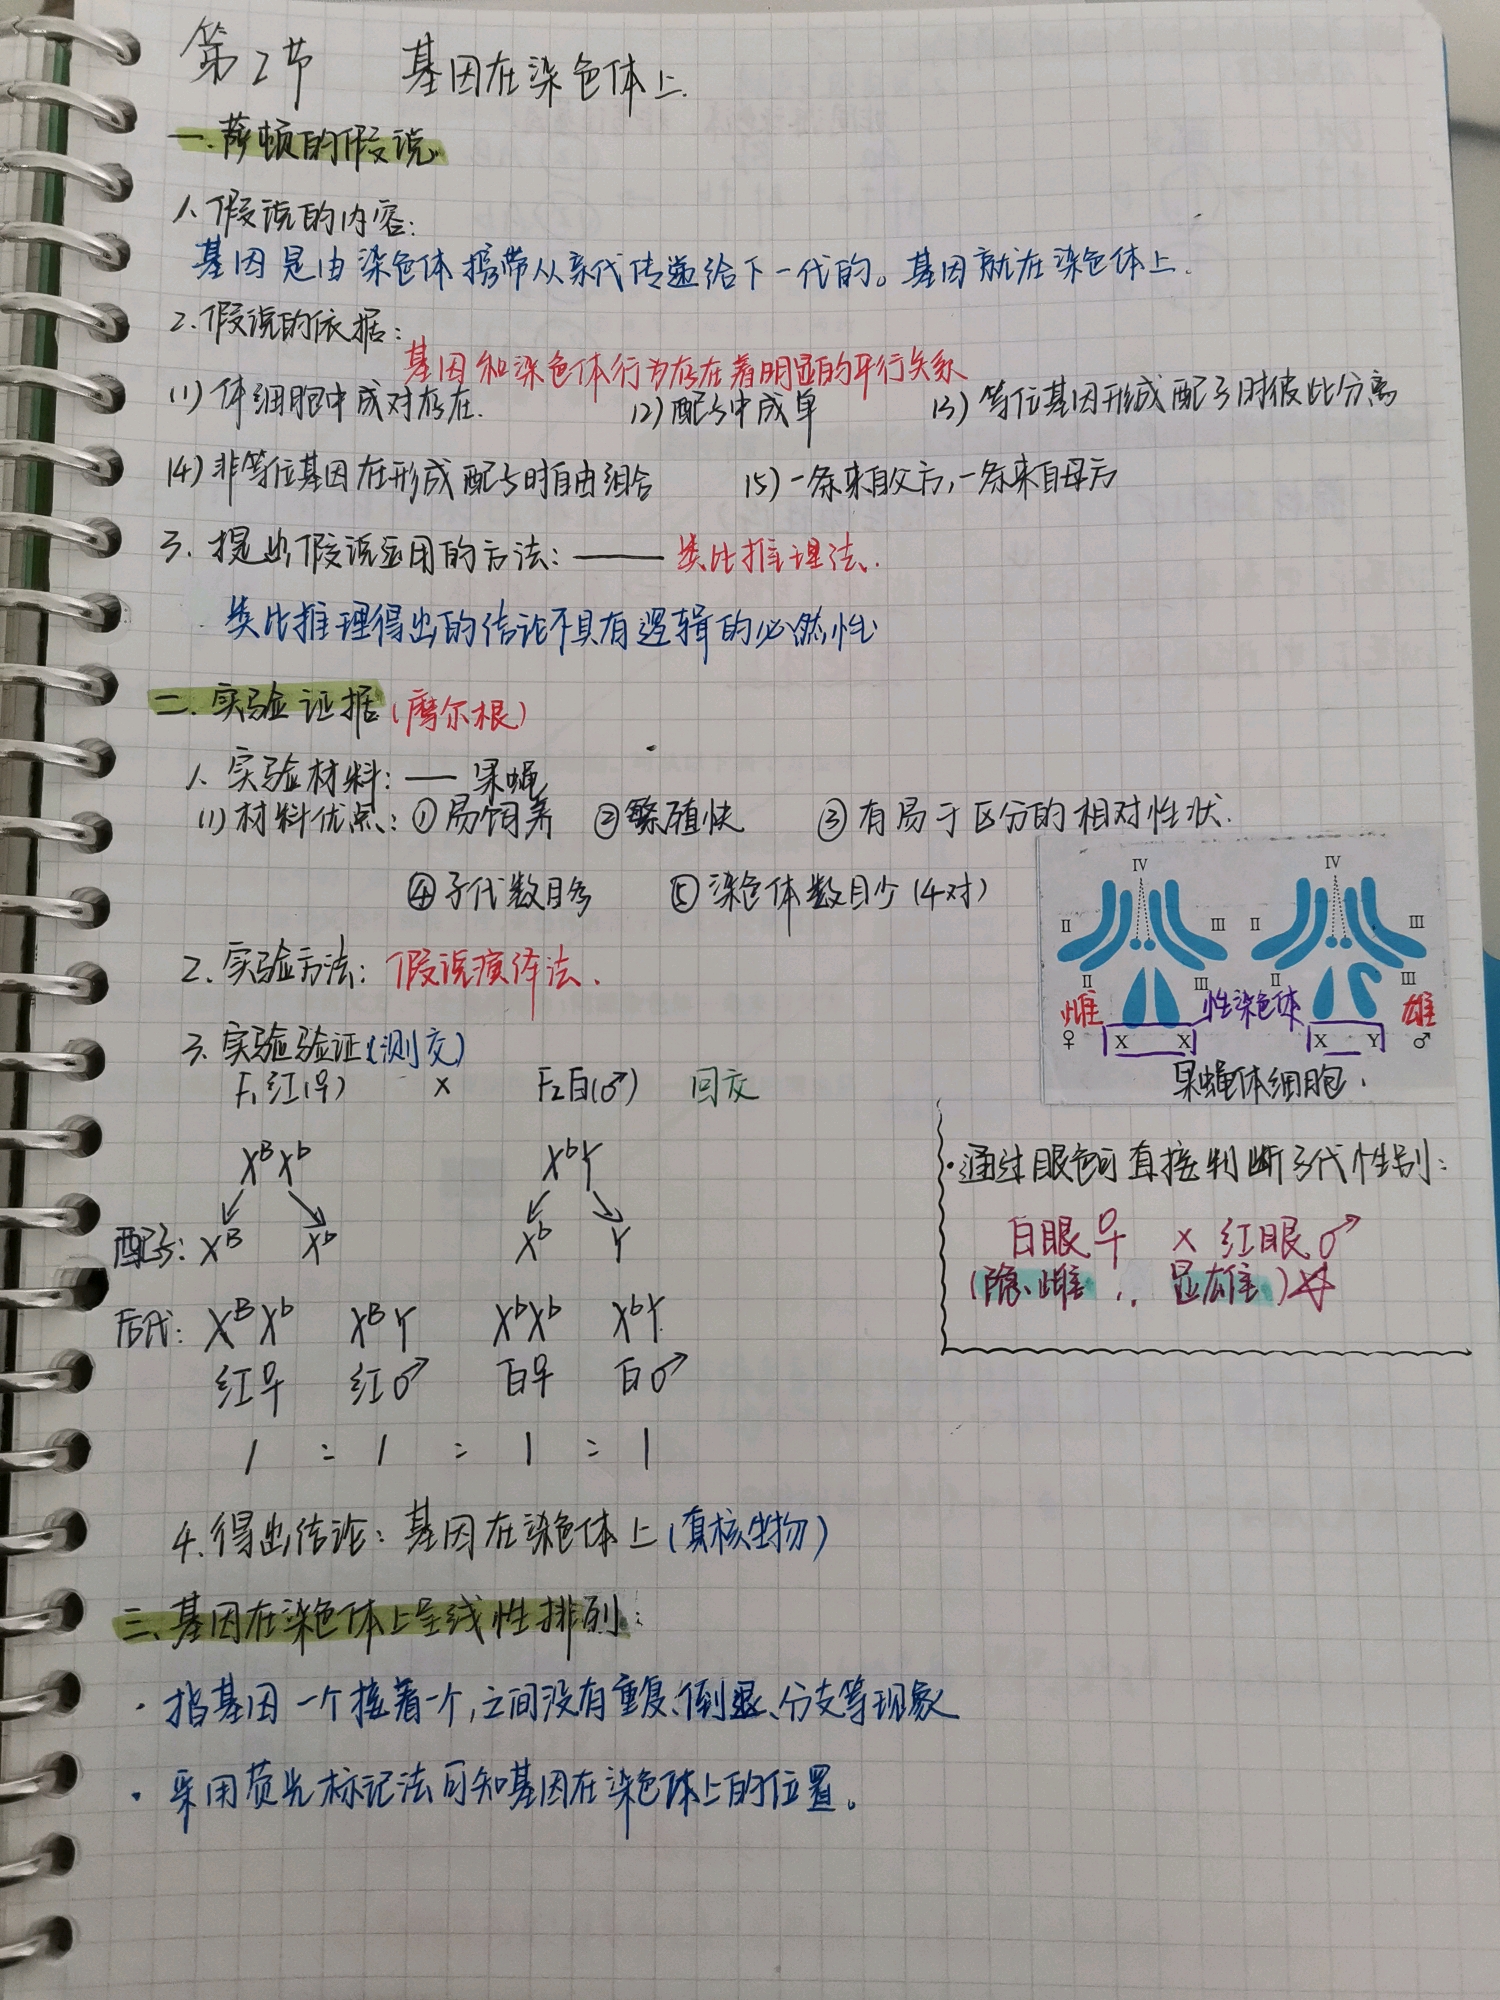 第2节 基因在染色体上.
一.萨顿的假说
1.假说的内容:
基因是由染色体携带从亲代传递给下一代的。基因就在染色体上.
2.假说的依据:
基因和染色体行为存在着明显的平行关系
(1)体细胞中成对存在. (2)配子中成单 (3)等位基因形成配子时彼此分离
(4)非等位基因在形成配子时自由组合 (5)一条来自父方,一条来自母方
3.提出假说运用的方法:—— 类比推理法.
类比推理得出的结论不具有逻辑的必然性
二.实验证据(摩尔根)
1.实验材料:— 果蝇
(1)材料优点:①易饲养 ②繁殖快 ③有易于区分的相对性状.
④子代数目多 ⑤染色体数目少(4对)
IV IV
II III II III
II III II III
雌 性染色体 雄
♀ X X X Y ♂
果蝇体细胞.
2.实验方法:假说演绎法.
3.实验验证(测交)
F₁红(♀) × F₂白(♂) 回交
XᴮXᵇ XᵇY
配子:Xᴮ Xᵇ Xᵇ Y
后代:XᴮXᵇ XᴮY XᵇXᵇ XᵇY.
红♀ 红♂ 白♀ 白♂
1 : 1 : 1 : 1
·通过眼色可直接判断子代性别:
白眼♀ × 红眼♂
(隐雌 .. 显雄)☆
4.得出结论:基因在染色体上(真核生物)
三.基因在染色体上呈线性排列:
·指基因一个接着一个,之间没有重复、倒退、分支等现象
·采用荧光标记法可知基因在染色体上的位置。